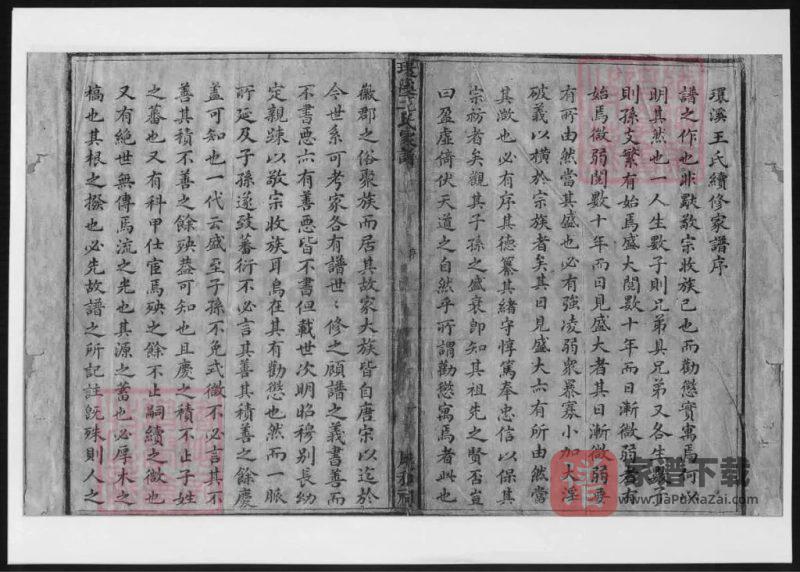 環溪王氏續修家譜序
譜之作也非歟敬宗收族已也而勸懲實寓焉何以
明其然也一人生數子則兄弟具兄弟又各生數子
則孫支繁有始焉盛大閱數十年而日漸微弱者有
始焉微弱閱數十年而日見盛大者其日漸微弱專
有所由然當其盛也必有強凌弱眾暴寡小加大淫
破義以橫於宗族者矣其日見盛大亦有所由然當
其微也必有序其德纂其緒守惇篤奉忠信以保其
宗祊者矣觀其子孫之盛衰即知其祖先之賢否豈
曰盈虛倚伏天道之自然乎所謂勸懲寓焉者此也
環溪王氏家譜
序
徽郡之俗聚族而居其故家大族皆自唐宋以迄於
今世系可考家各有譜世〻修之顧譜之義書善而
不書惡亦有善惡皆不書但載世次明昭穆別長幼
定親踈以敬宗收族耳烏在其有勸懲也然而一脈
所延及子孫遂致蕃衍不必言其善其積善之餘慶
蓋可知也一代云盛至子孫不免式微不必言其不
善其積不善之餘殃蓋可知也且慶之積不止子姓
之蕃也又有科甲仕宦焉殃之餘不止嗣續之微也
又有絕世無傳焉流之光也其源之蓄也必厚木之
槁也其根之撥也必先故譜之所記註旣殊則人之
家谱下载
www.JiaPuXiaZai.com